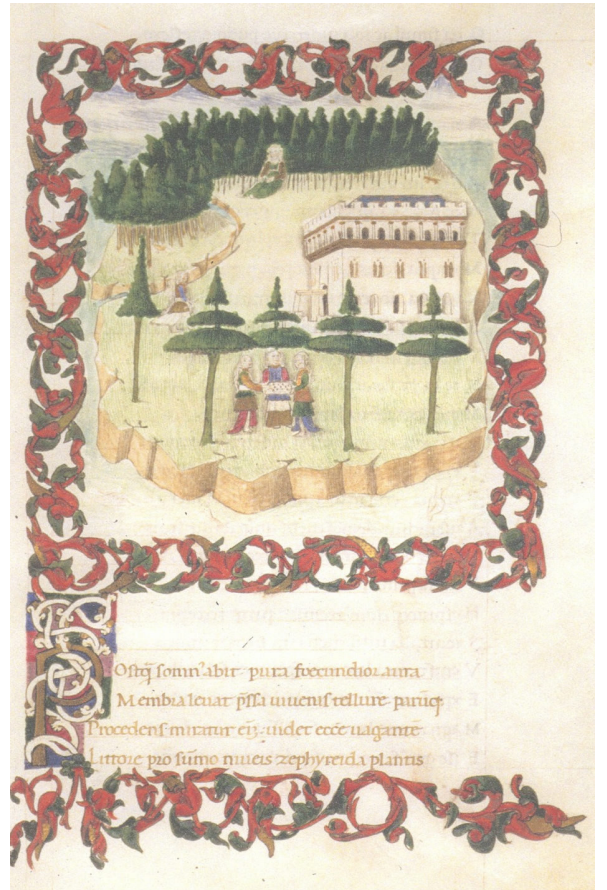 Postq̃ somn⁹ abit pura foecundior aura
Membra leuat p̃ssa iuuenis tellure parũq;
Procedens miratur eũ; uidet ecce uagantẽ
Littore pro sũmo niueis zephyreida plantis